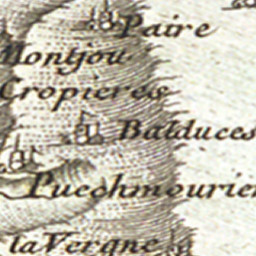 Paire
Montjou
Cropieres
Balduces
Puechmourier
la Vergne